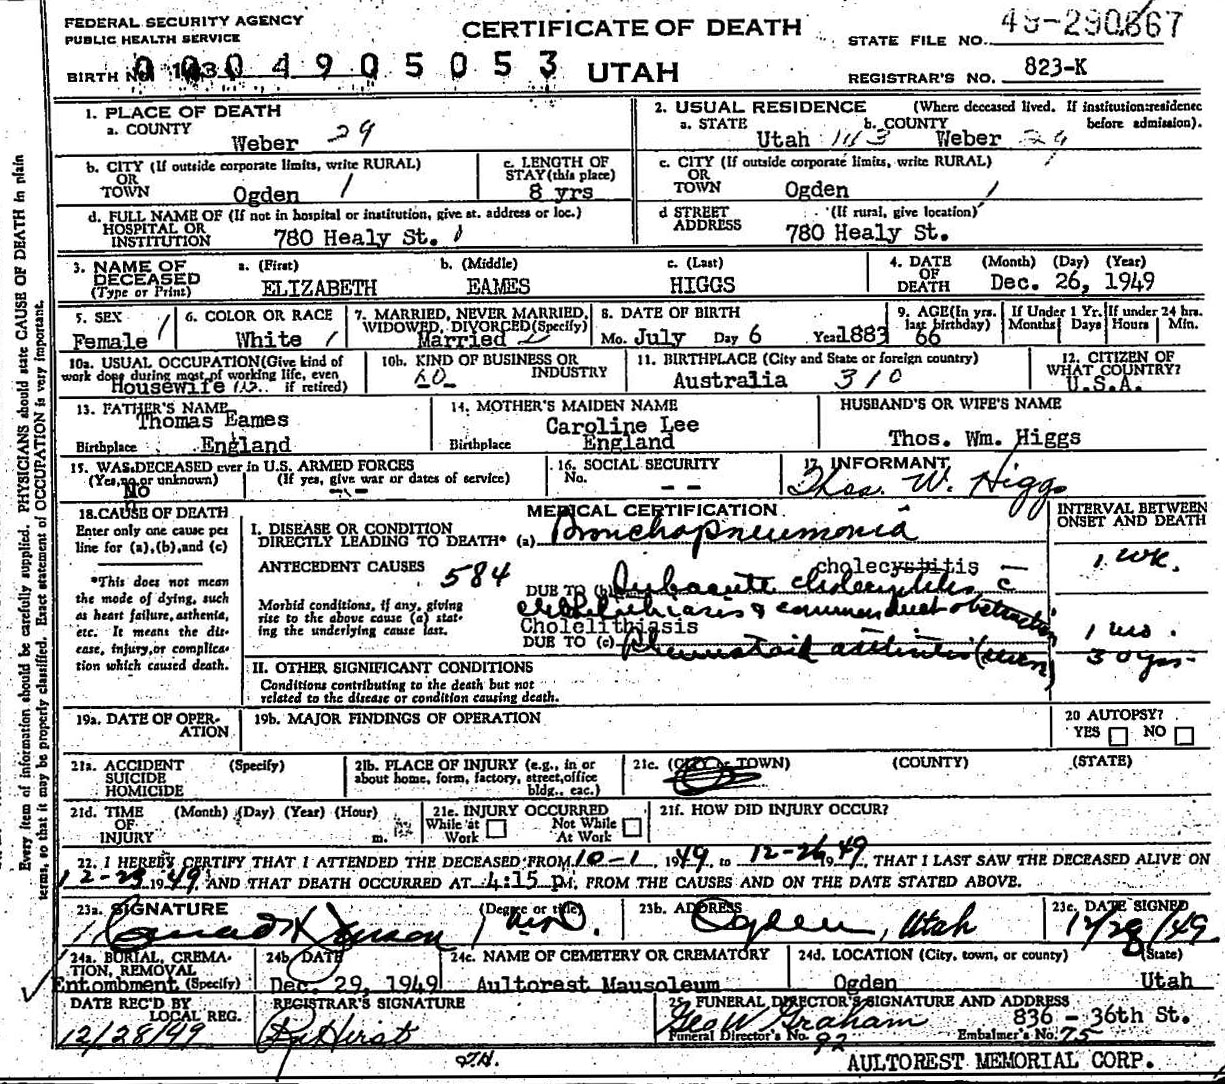 FEDERAL SECURITY AGENCY
PUBLIC HEALTH SERVICE
CERTIFICATE OF DEATH
STATE FILE NO.
BIRTH NO. 0004905053
UTAH
REGISTRAR'S NO. 823-K
Every item of information should be carefully supplied. PHYSICIANS should state CAUSE OF DEATH in plain
terms, so that it may be properly classified. Exact statement of OCCUPATION is very important.
1. PLACE OF DEATH
a. COUNTY
Weber 29
2. USUAL RESIDENCE (Where deceased lived. If institution:residence
a. STATE b. COUNTY before admission).
Utah Weber
b. CITY (If outside corporate limits, write RURAL)
OR
TOWN Ogden 1
c. LENGTH OF
STAY (this place)
8 yrs
c. CITY (If outside corporate limits, write RURAL)
OR
TOWN Ogden 1
d. FULL NAME OF (If not in hospital or institution, give st. address or loc.)
HOSPITAL OR
INSTITUTION 780 Healy St.
d STREET (If rural, give location)
ADDRESS 780 Healy St.
3. NAME OF DECEASED (Type or Print)
a. (First) b. (Middle) c. (Last)
ELIZABETH EAMES HIGGS
4. DATE OF DEATH (Month) (Day) (Year)
Dec. 26, 1949
5. SEX
Female 1
6. COLOR OR RACE
White 1
7. MARRIED, NEVER MARRIED,
WIDOWED, DIVORCED(Specify)
Married 2
8. DATE OF BIRTH
Mo. July Day 6 Year 1883
9. AGE(In yrs. last birthday)
66
If Under 1 Yr. Months Days
If under 24 hrs. Hours Min.
10a. USUAL OCCUPATION(Give kind of
work done during most of working life, even
Housewife if retired)
10b. KIND OF BUSINESS OR
INDUSTRY
11. BIRTHPLACE (City and State or foreign country)
Australia 310
12. CITIZEN OF
WHAT COUNTRY?
U.S.A.
13. FATHER'S NAME
Thomas Eames
Birthplace England
14. MOTHER'S MAIDEN NAME
Caroline Lee
Birthplace England
HUSBAND'S OR WIFE'S NAME
Thos. Wm. Higgs
15. WAS DECEASED ever in U.S. ARMED FORCES
(Yes, no or unknown) (If yes, give war or dates of service)
No ---
16. SOCIAL SECURITY
No. --
17 INFORMANT
Thos. W. Higgs
18. CAUSE OF DEATH
Enter only one cause per
line for (a),(b),and (c)
*This does not mean
the mode of dying, such
as heart failure, asthenia,
etc. It means the dis-
ease, injury, or complica-
tion which caused death.
MEDICAL CERTIFICATION
INTERVAL BETWEEN
ONSET AND DEATH
I. DISEASE OR CONDITION
DIRECTLY LEADING TO DEATH* (a) Bronchopneumonia 1 wk.
ANTECEDENT CAUSES 584
cholecystitis
DUE TO (b) Subacute cholecystitis c
Morbid conditions, if any, giving
rise to the above cause (a) stat-
ing the underlying cause last.
cholelithiasis & common duct obstruction 1 mo.
Cholelithiasis
DUE TO (c) Rheumatoid arthritis 30 yrs
II. OTHER SIGNIFICANT CONDITIONS
Conditions contributing to the death but not
related to the disease or condition causing death.
19a. DATE OF OPER-
ATION
19b. MAJOR FINDINGS OF OPERATION
20 AUTOPSY?
YES NO
21a. ACCIDENT (Specify)
SUICIDE
HOMICIDE
21b. PLACE OF INJURY (e.g., in or
about home, form, factory, street, office
bldg., eac.)
21c. (CITY or TOWN) (COUNTY) (STATE)
21d. TIME (Month) (Day) (Year) (Hour)
OF
INJURY m.
21e. INJURY OCCURRED
While at Work Not While At Work
21f. HOW DID INJURY OCCUR?
22. I HEREBY CERTIFY THAT I ATTENDED THE DECEASED FROM 10-1 1949, to 12-26 1949, THAT I LAST SAW THE DECEASED ALIVE ON
12-23 1949 AND THAT DEATH OCCURRED AT 4:15 p.M. FROM THE CAUSES AND ON THE DATE STATED ABOVE.
23a. SIGNATURE (Degree or title)
M.D.
23b. ADDRESS
Ogden, Utah
23c. DATE SIGNED
12/28/49
24a. BURIAL, CREMA-
TION, REMOVAL
Entombment (Specify)
24b. DATE
Dec. 29, 1949
24c. NAME OF CEMETERY OR CREMATORY
Aultorest Mausoleum
24d. LOCATION (City, town, or county) (State)
Ogden Utah
DATE REC'D BY
LOCAL REG.
12/28/49
REGISTRAR'S SIGNATURE
25 FUNERAL DIRECTOR'S SIGNATURE AND ADDRESS
Geo W Graham 836 - 36th St.
Funeral Director's No. 92 Embalmer's No. 75
AULTOREST MEMORIAL CORP.